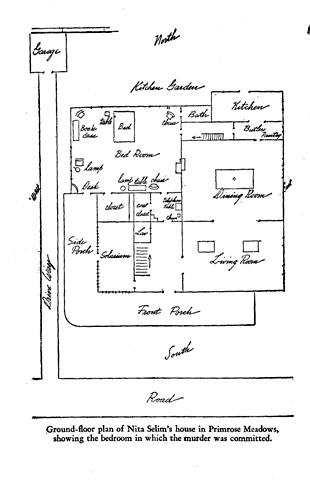 North
Garage
Kitchen Garden
Kitchen
Bath
Butler's
Pantry
table
chaise
Bed
Book-
case
Bed Room
lamp
Desk
lamp table chaise
Dining Room
closet
closet
Telephone
table
Chair
Lav
Side
Porch
Solarium
Living Room
Drive Way
Front Porch
South
Road
Ground-floor plan of Nita Selim's house in Primrose Meadows,
showing the bedroom in which the murder was committed.